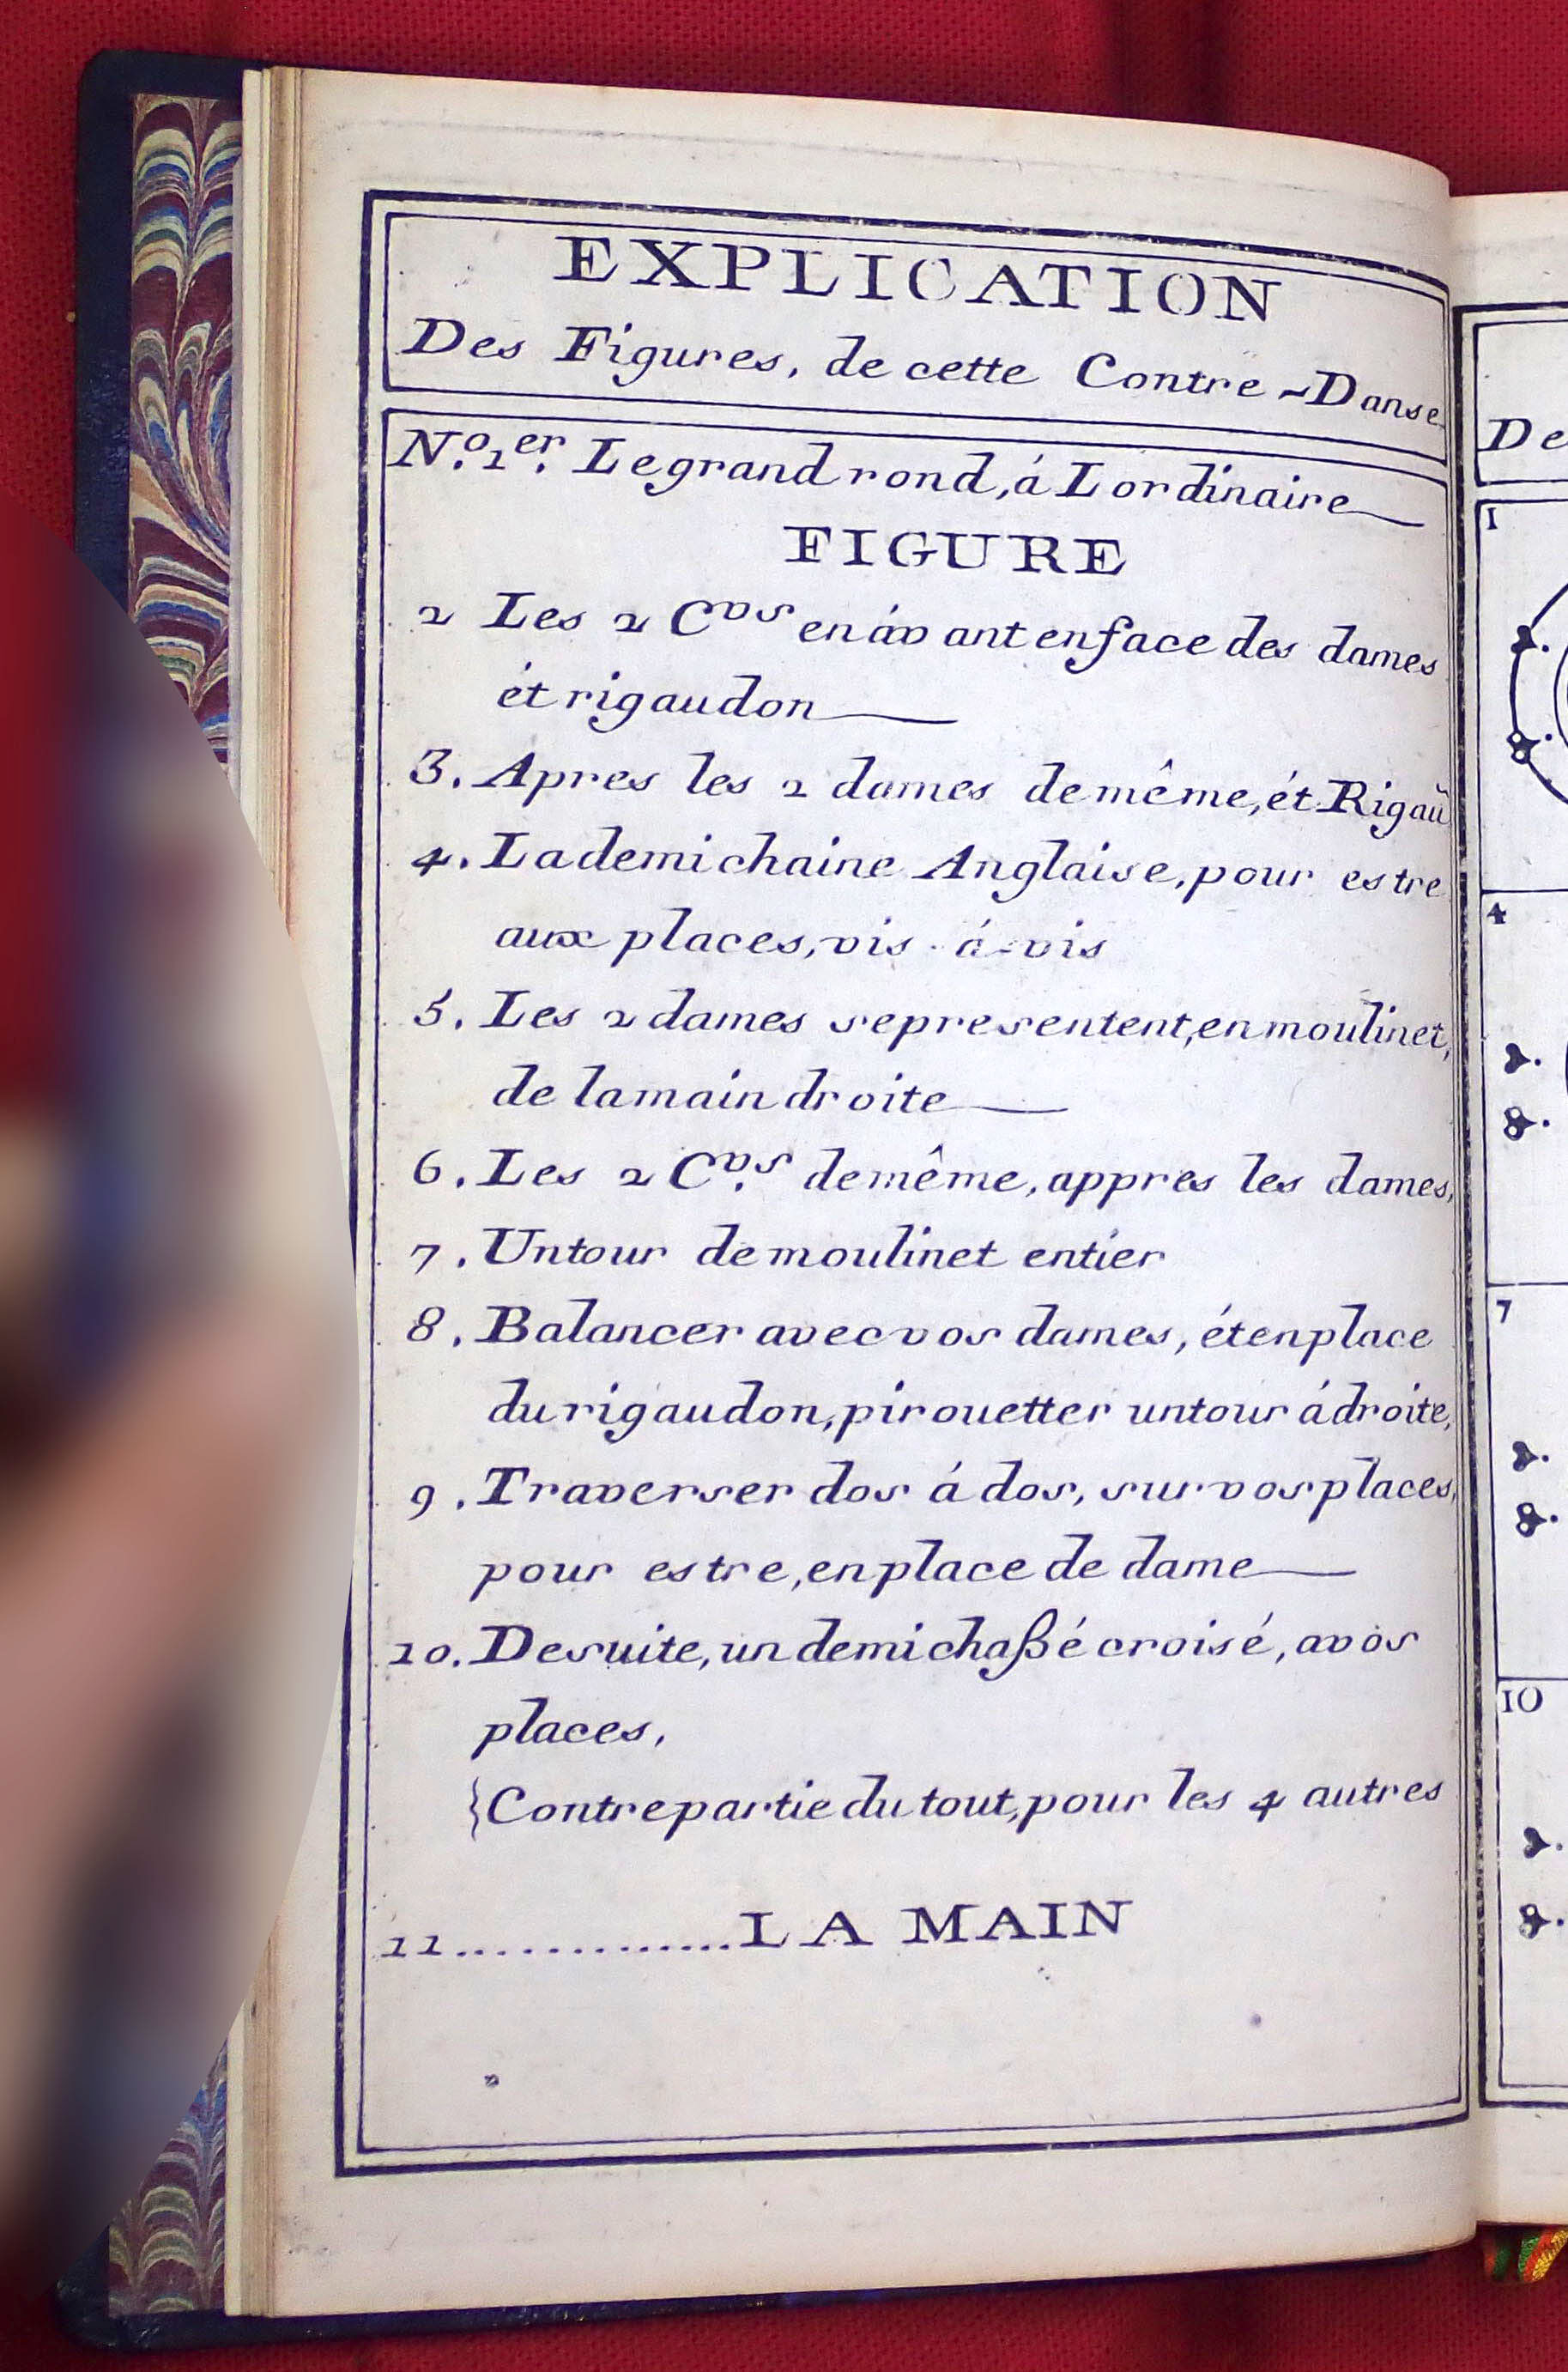 EXPLICATION
Des Figures, de cette Contre-Danse
N.º 1.er Le grand rond, á Lordinaire
FIGURE
2 Les 2 C.vrs en ávant en face des dames
ét rigaudon
3. Apres les 2 dames de même, ét Rigaũ
4. La demi chaine Anglaise, pour estre
aux places, vis-á-vis
5. Les 2 dames se presentent, en moulinet,
de la main droite
6. Les 2 C.vrs de même, appres les dames,
7. Un tour de moulinet entier
8. Balancer avec vos dames, ét en place
du rigaudon, pirouetter un tour á droite,
9. Traverser dos á dos, sur vos places,
pour estre, en place de dame
10. De suite, un demi chaßé croisé, a vos
places,
{Contre partie du tout, pour les 4 autres
11..............LA MAIN
De
1
4
7
10